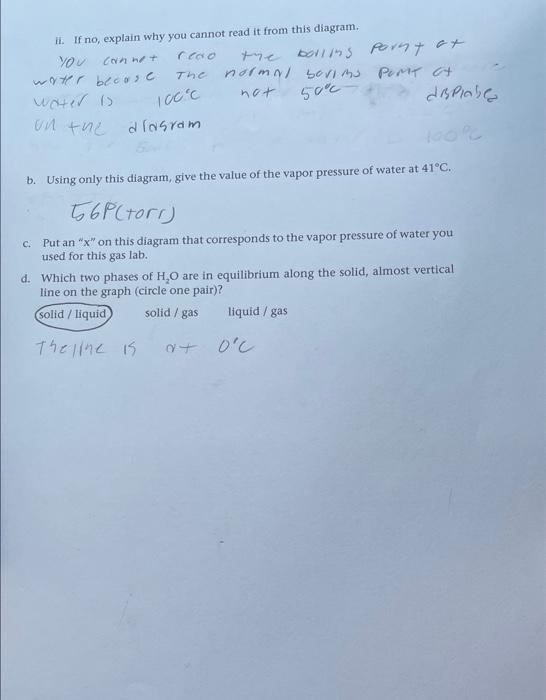 ii. If no, explain why you cannot read it from this diagram.
You cannot read the boiling point at
water because The normal boiling point at
water is 100°C not 50°C displabe
on the diagram
100°C
b. Using only this diagram, give the value of the vapor pressure of water at 41°C.
56P(torr)
c. Put an "x" on this diagram that corresponds to the vapor pressure of water you
used for this gas lab.
d. Which two phases of H₂O are in equilibrium along the solid, almost vertical
line on the graph (circle one pair)?
solid / liquid solid / gas liquid / gas
The line is at 0°C